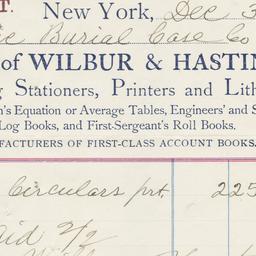 T. New York, Dec 3
ic Burial Case Co
of WILBUR & HASTIN
g Stationers, Printers and Lith
n's Equation or Average Tables, Engineers' and S
Log Books, and First-Sergeant's Roll Books.
UFACTURERS OF FIRST-CLASS ACCOUNT BOOKS.
Circulars prt. 225
aid 2/2